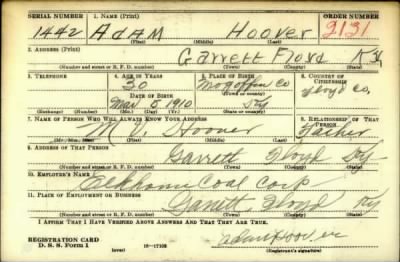 SERIAL NUMBER 1. NAME (Print) ORDER NUMBER
1442 ADAM Hoover 2131
(First) (Middle) (Last)
2. ADDRESS (Print)
Garrett Floyd Ky
(Number and street or R. F. D. number) (Town) (County) (State)
3. TELEPHONE 4. AGE IN YEARS 5. PLACE OF BIRTH 6. COUNTRY OF CITIZENSHIP
30 Magoffin Co Floyd Co,
DATE OF BIRTH (Town or county)
Mar 5 1910 Ky
(Exchange) (Number) (Mo.) (Day) (Yr.) (State or country)
7. NAME OF PERSON WHO WILL ALWAYS KNOW YOUR ADDRESS 8. RELATIONSHIP OF THAT PERSON
M. V. Hoover Father
(Mr., Mrs., Miss) (First) (Middle) (Last)
9. ADDRESS OF THAT PERSON
Garrett Floyd Ky
(Number and street or R. F. D. number) (Town) (County) (State)
10. EMPLOYER'S NAME
Elkhorn Coal Corp
11. PLACE OF EMPLOYMENT OR BUSINESS
Garrett Floyd Ky
(Number and street or R. F. D. number) (Town) (County) (State)
I AFFIRM THAT I HAVE VERIFIED ABOVE ANSWERS AND THAT THEY ARE TRUE.
REGISTRATION CARD
D. S. S. Form 1 (over) 16—17105 Adam Hoover
(Registrant's signature)